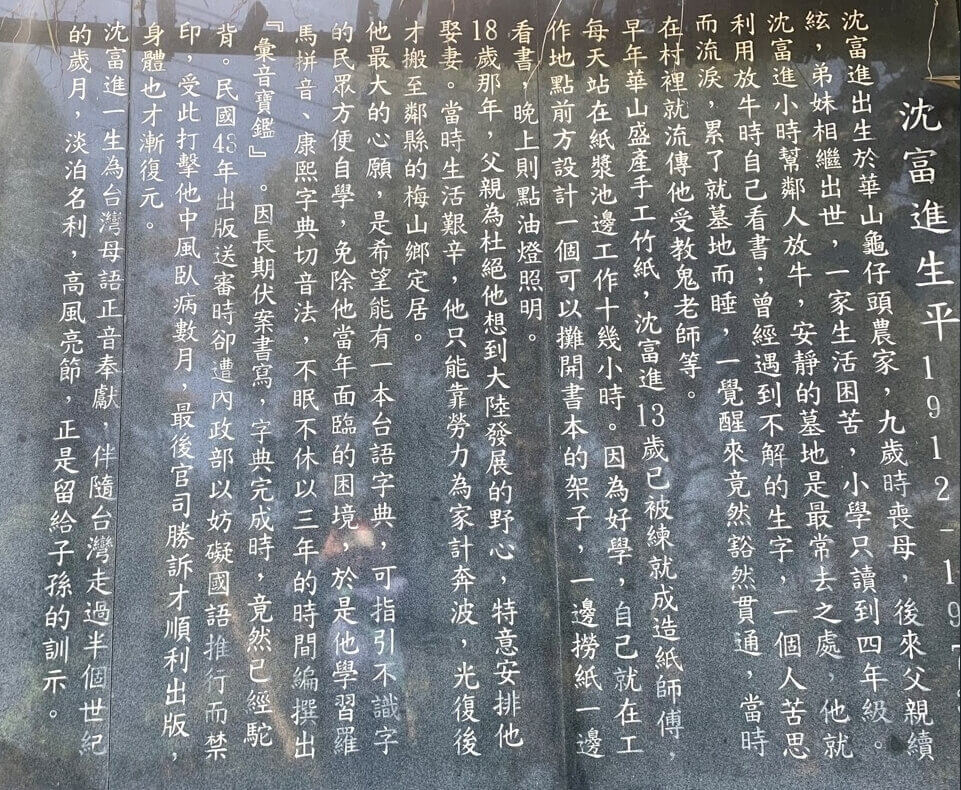 沈富進生平1912-197
沈富進出生於華山龜仔頭農家，九歲時喪母，後來父親續
絃，弟妹相繼出世，一家生活困苦，小學只讀到四年級。
沈富進小時幫鄰人放牛，安靜的墓地是最常去之處，他就
利用放牛時自己看書；曾經遇到不解的生字，一個人苦思
而流淚，累了就墓地而睡，一覺醒來竟然豁然貫通，當時
在村裡就流傳他受教鬼老師等。
早年華山盛產手工竹紙，沈富進13歲已被練就成造紙師傅，
每天站在紙漿池邊工作十幾小時。因為好學，自己就在工
作地點前方設計一個可以攤開書本的架子，一邊撈紙一邊
看書，晚上則點油燈照明。
18歲那年，父親為杜絕他想到大陸發展的野心，特意安排他
娶妻。當時生活艱辛，他只能靠勞力為家計奔波，光復後
才搬至鄰縣的梅山鄉定居。
他最大的心願，是希望能有一本台語字典，可指引不識字
的民眾方便自學，免除他當年面臨的困境，於是他學習羅
馬拼音、康熙字典切音法，不眠不休以三年的時間編撰出
『彙音寶鑑』。因長期伏案書寫，字典完成時，竟然已經駝
背。民國43年出版送審時卻遭內政部以妨礙國語推行而禁
印，受此打擊他中風臥病數月，最後官司勝訴才順利出版，
身體也才漸復元。
沈富進一生為台灣母語正音奉獻，伴隨台灣走過半個世紀
的歲月，淡泊名利，高風亮節，正是留給子孫的訓示。